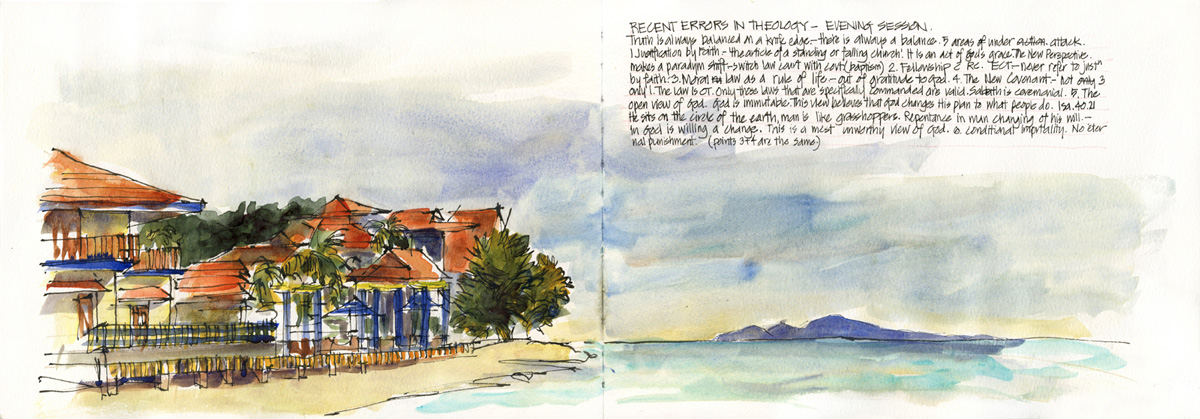 RECENT ERRORS IN THEOLOGY – EVENING SESSION.
Truth is always balanced on a knife edge – there is always a balance. 5 areas of under attack.
1. Justification by Faith – the article of a standing or falling church. It is an act of God's grace. The New Perspective.
makes a paradigm shift – switch law court with (baptism) 2. Fellowship RC. ECT – never refer to just
by faith. 3. Moral law as a rule of life – out of gratitude to God. 4. The New Covenant – not only 3
only 1. The law is OT. Only those laws that are specifically commanded are valid. Sabbath is ceremonial. 5. The
open view of God. God is immutable. This view believes that God changes His plan to what people do. Isa. 40.21
He sits on the circle of the earth, man is like grasshoppers. Repentance in man changing of his will –
in God is willing a change. This is a most unworthy view of God. 6. Conditional No eter
nal punishment. (points 3+4 are the same)